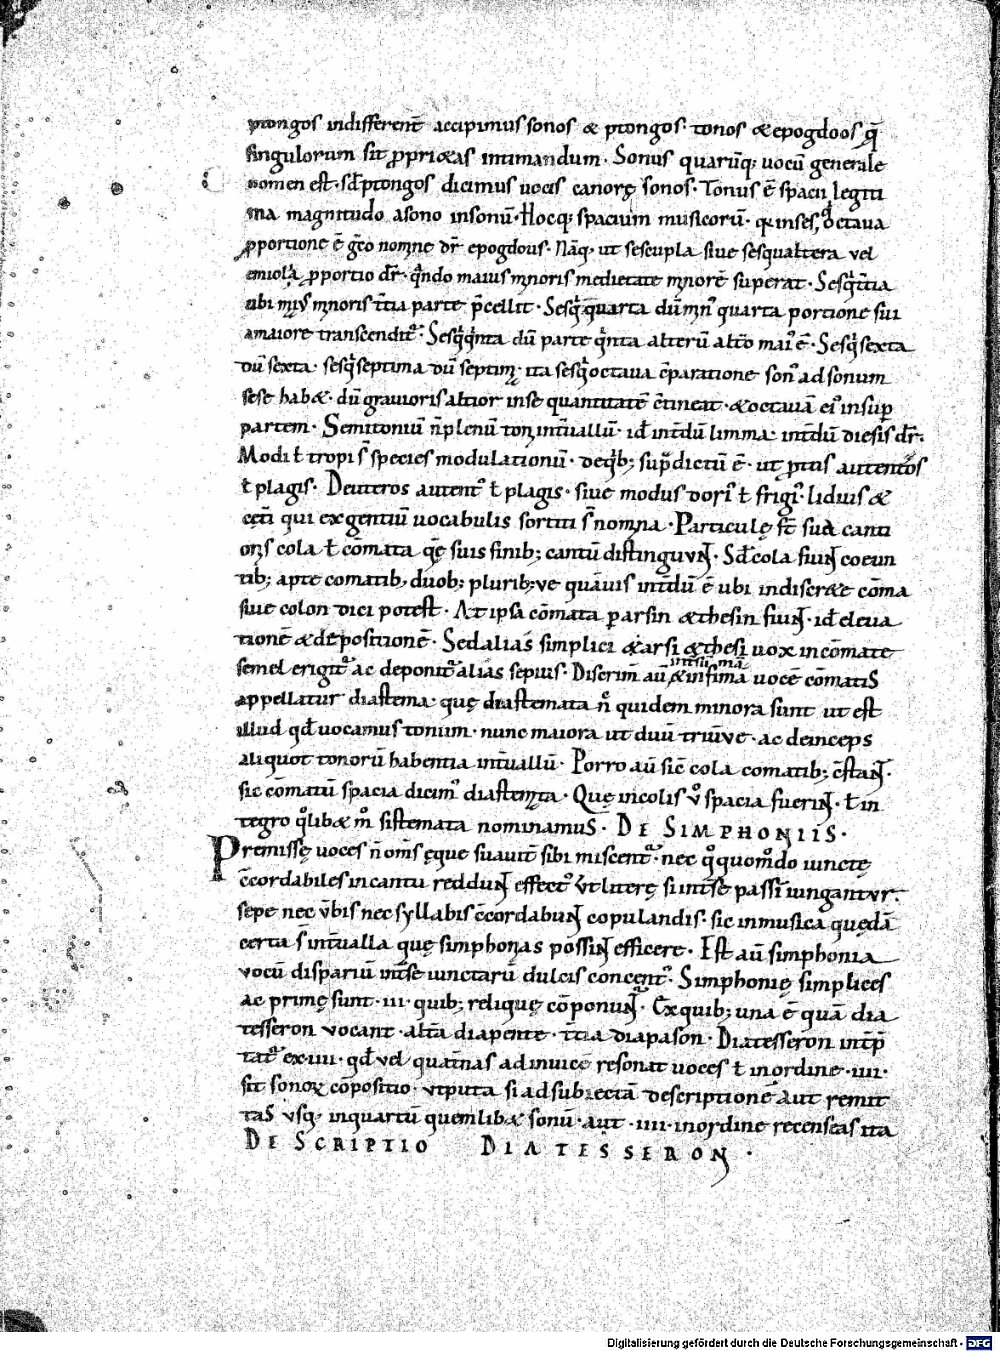 ptongos indifferent̄ accipimus sonos & ptongos· tonos & epogdoos q̄
singulorum sit ꝓpri&as intimandum· Sonus quarūq; uocū generale
nomen est· sꝺ̄ ptongos dicimus uocis canorę sonos· Tonus ē spacii legiti
ma magnitudo asono insonū· Hocq; spacium musicorū· octaua
ꝓportione ē ḡco nomine dr̄ epogdous· Nāq; ut sescupla siue sesqualtera vel
emiola ꝓportio dr̄· qn̄do maius minoris medietate minorē superat· Sesq̄tia
ubi minoris t̄tia parte p̄cellit· Sesq̄quarta dū min̄ quarta portione sui
amaiore transcendit᷑· Sesq̄q̄nta dū parte q̄nta alterū alt̄o mai᷒ ē· Sesq̄sexta
dū sexta· sesq̄septima dū septim̄· ita sesq̄octaua c̄paratione son᷒ ad sonum
sese hab&· dū grauioris altior inse quantitatē c̄tineat· &octauā ei᷒ insuꝑ
partem· Semitoniū n̄ plenū toni int̄uallū· id int̄dū limma· int̄dū diesis dr̄·
Modi ƚ tropi s̄ species modulationū· deq̄b; sup̄dictū ē· ut ꝓtus autentos
ƚ plagis· Deuteros autent᷒ ƚ plagis· siue modus dori᷒ ƚ frigi᷒· lidius &
cęt̄i qui exgentiū uocabulis sortiti s̄ nomina· Particulę sua canti
onis cola ƚ cōmata q̄ę suis finib; cantū distinguunt· Sꝺ̄ cola fiunt coeun
tib; apte comatib; duob; plurib;ve quāuis int̄dū ē ubi indiscr&e cōma
siue colon dici potest· At ipsa cōmata ꝑarsin &thesin fiunt· id eleua
tionē &depositionē· Sed aliās simplici &arsi &thesi uox incōmate
semel erigit᷑ ac deponit᷑ aliās sepius· Discrim̄ aū &infimā uocē cōmatis
appellatur diastema· quę diastemata n̄ quidem minora sunt ut est
illud qd̄ uocamus tonum· nunc maiora ut duū triūve· ac deinceps
aliquot tonorū habentia int̄uallū· Porro aū sic̄ cola comatib; c̄stant·
sic cōmatū spacia dicim᷒ diastemata· Quę incolis v᷒ spacia fuerint· ƚ in
tegro q᷒lib& m̄ sistemata nominamus· DE SIMPHONIIS·
Premissę uoces n̄ om̄s ęque suauit̄ sibi miscent᷑· nec q᷒quom᷒do iunctę
c̄cordabiles incantu reddunt effect᷒ Vt literę si int̄se passī iungantvr·
sepe nec v̄bis nec syllabis c̄cordabunt copulandis· sic inmusica quędā
certa s̄ int̄ualla quę simphonias possint efficere· Est aū simphonia
vocū dispariū int̄se iunctarū dulcis concent᷒· Simphonię simplices
ac primę sunt· iii· quib; reliquę cōponunt᷑· Exquib; una ē quā dia
tesseron vocant· alt̄a diapente· t̄tia diapason· Diatesseron int̄p̄
tat᷑ ex·iiii· qd̄ vel quat̄nas adinuicē resonat uoces ƚ inordine·iiii·
sit sonoꝝ cōpositio· vtputa si adsubiectā descriptionē aut remit
tas vsq; inquartū quemlib& sonū· aut ·iiii· inordine recenseas ita
DE SCRIPTIO DIATESSERON·
Digitalisierung gefördert durch die Deutsche Forschungsgemeinschaft · DFG